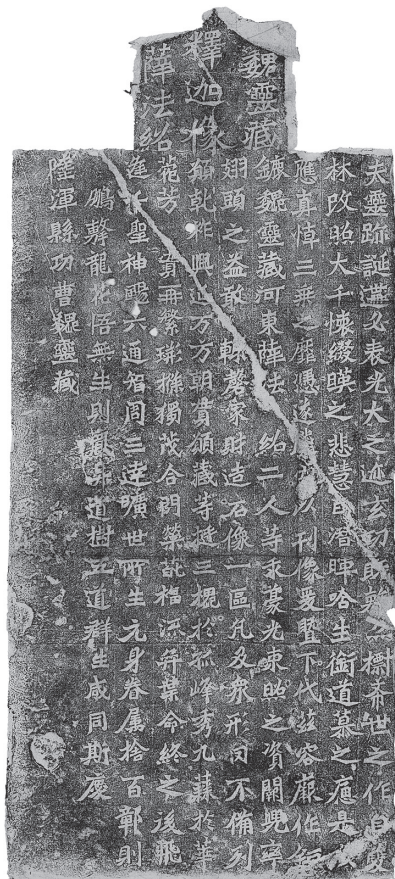 魏靈藏
釋迦像
薛法紹
夫靈跡誕遘必表光大之迹玄功既敷亦標希世之作自雙
林改照大千懷綴暎之悲慧日潛暉唅生銜道慕之痛是以
應真悼三乘之靡憑遂騰空以刊像爰暨下代茲容厥作鉅
鏕魏靈藏河東薛法紹二人等求豪光東照之資闕兜率
翅頭之益敢輒罄家財造石像一區凡及眾形罔不備列
願乾祚興延万方朝貫願藏等挺三槐於孤峰秀九蕀於華
菀芳實再繁條獨茂合門榮葩福流弈葉命終之後飛
逢千聖神颺六通智周三達曠世所生元身眷屬捨百鄣則
鵬擊龍花悟無生則鳳昇道樹五道群生咸同斯慶
陸渾縣功曹魏靈藏